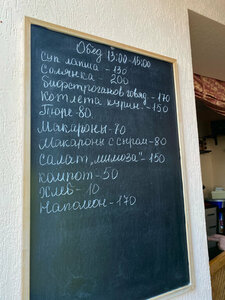 Обед 13:00-15:00
суп лапша - 130
Солянка - 200
бифстроганов говяд. - 170
котлета курин. - 150
Пюре - 80
Макароны - 80
Макароны с сыром - 80
салат „мимоза" - 150
компот - 50
Хлеб - 10
Наполеон - 170